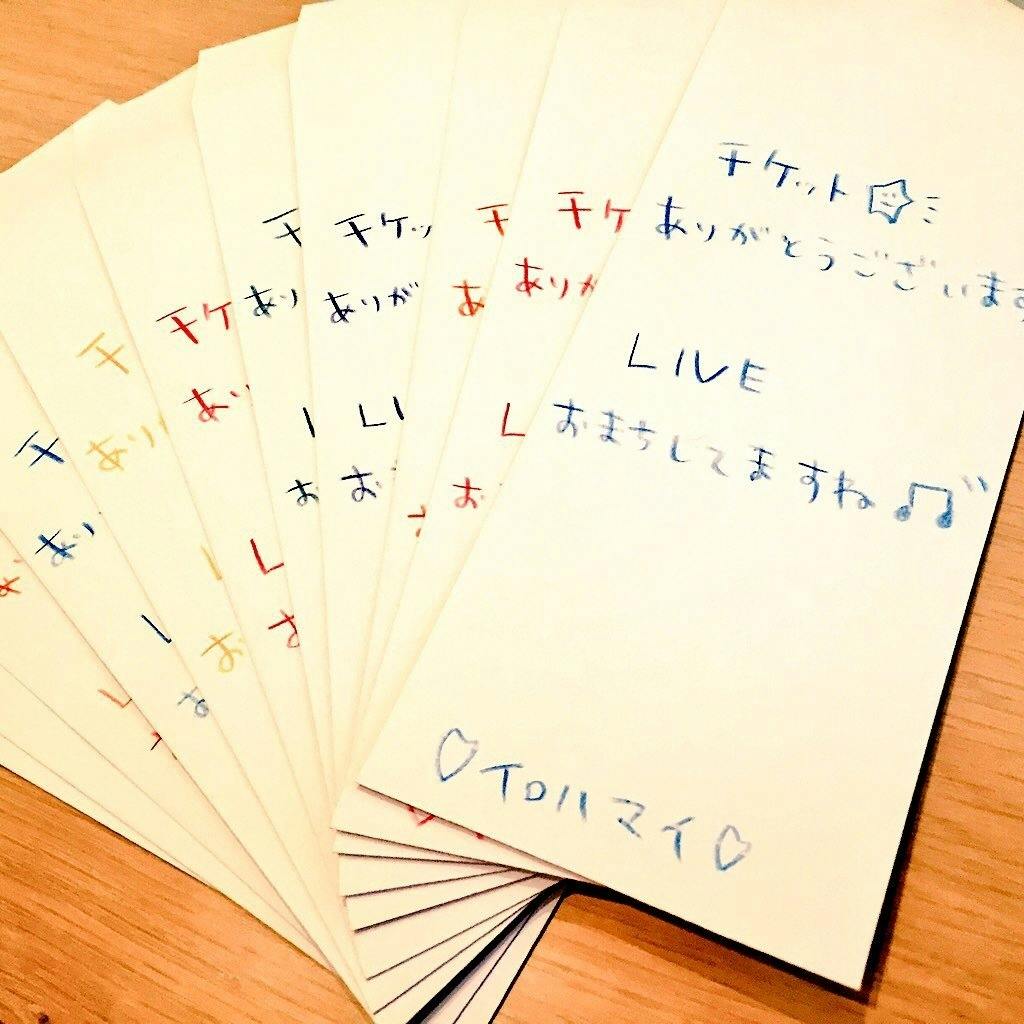 チケット
ありがとうございます
LIVE
おまちしてますね♫
♡イロハマイ♡
チケ
ありが
L
お
チ
あ
チケッ
ありが
LI
お
チ
あり
l
お
チケ
あり
L
お
チ
あり
l
お
チ
あり
L
お
L